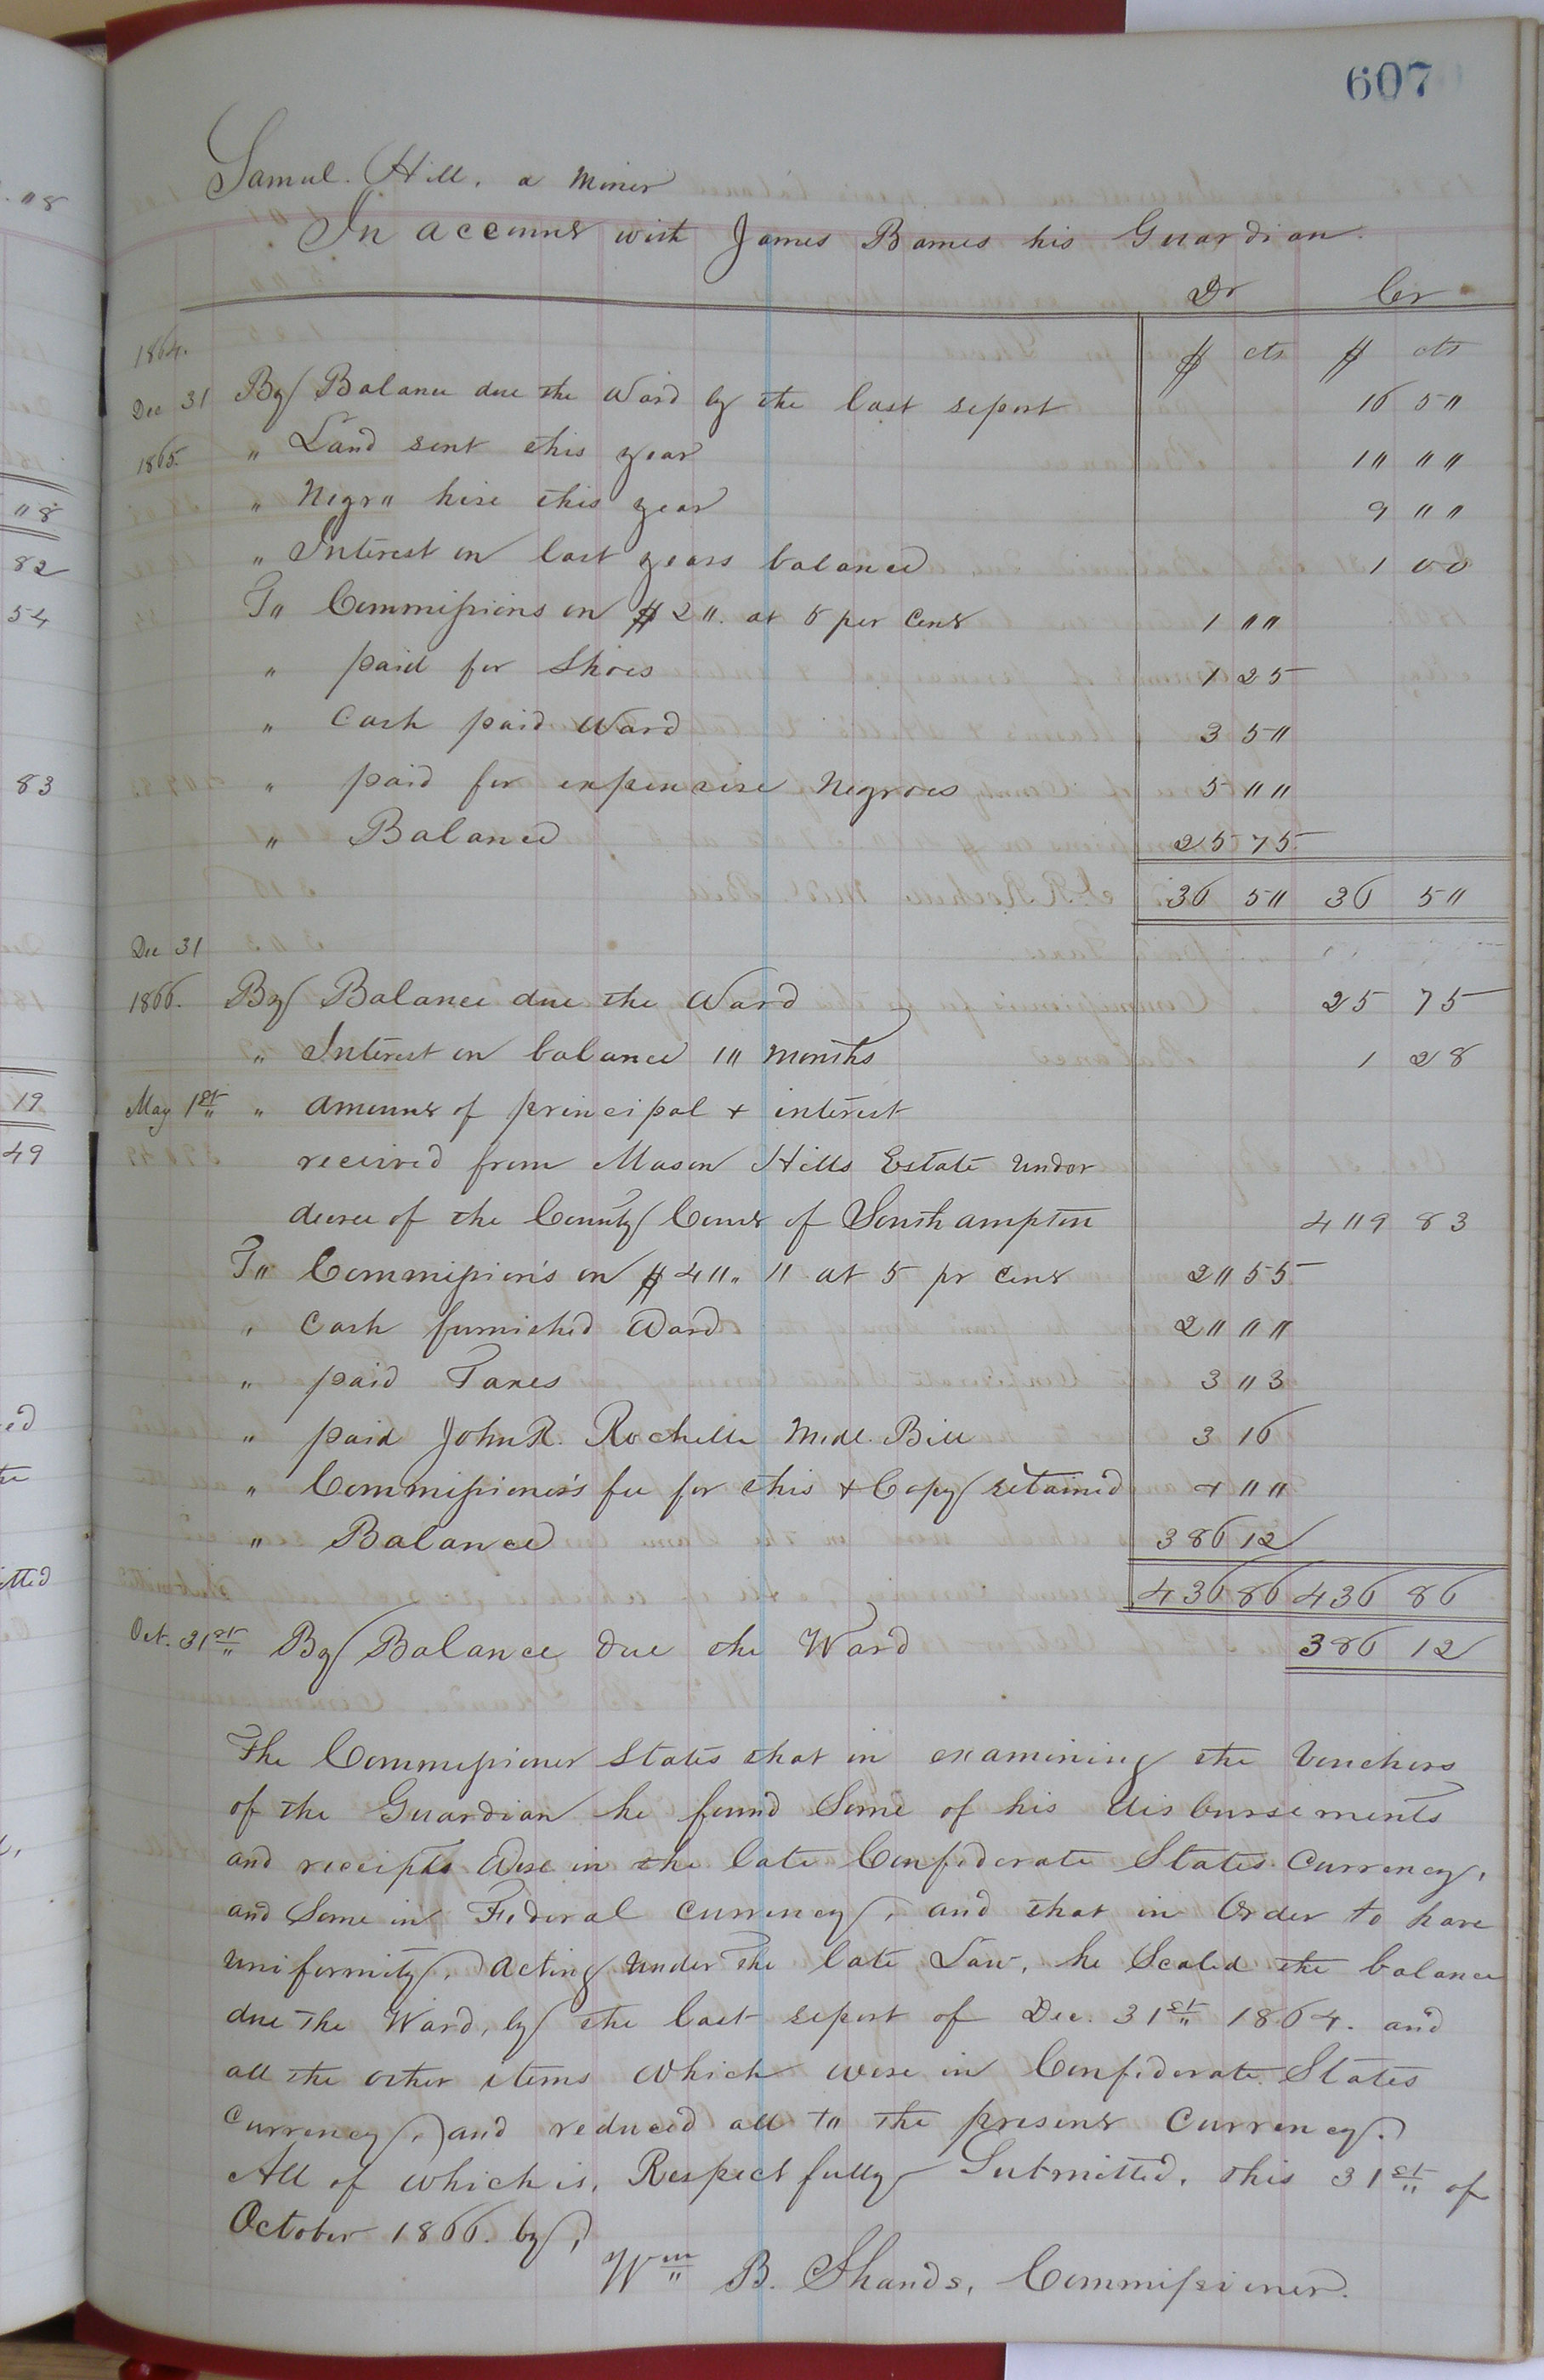 607
Samuel. Hill. a minor
In account with James Barnes his Guardian.
Dr Cr
1864. $ cts $ cts
Dec 31 By Balance due the Ward by the last report 16 5"
1865. " Land rent this year 1" ""
" Negr" hire this year 9 ""
" Interest on last years balance 1 00
T" Commissions on $2". at 5 per cent 1 ""
" paid for Shoes 1 25
" Cash paid Ward 3 5"
" paid for expensive Negroes 5 ""
" Balance 25 75
36 5" 36 5"
Dec 31
1866. By Balance due the Ward 25 75
" Interest on balance 1" months 1 28
May 1st " amount of principal & interest
received from Mason Hills Estate under
decree of the County Court of Southampton 4"9 83
T" Commission's on $4"". " at 5 pr cent 2" 55
" Cash furnished Ward 2" ""
" paid Taxes 3 "3
" paid John R. Rochelle Medl. Bill 3 16
" Commissioner's fee for this & Copy retained 4 ""
" Balance 386 12
436 86 436 86
Oct. 31st By Balance due the Ward 386 12
The Commissioner States that in examining the Vouchers
of the Guardian he found Some of his disbursements
and receipts were in the late Confederate States Currency,
and Some in Federal currency, and that in Order to have
uniformity, acting under the late Law, he Scaled the balance
due the Ward, by the last report of Dec. 31st 1864. and
all the other items which were in Confederate States
Currency, and reduced all t" the present Currency.
All of which is, Respectfully Submitted, this 31st of
October 1866. by,
Wm B. Shands, Commissioner.
"8
"8
82
54
83
19
49
ed
itted